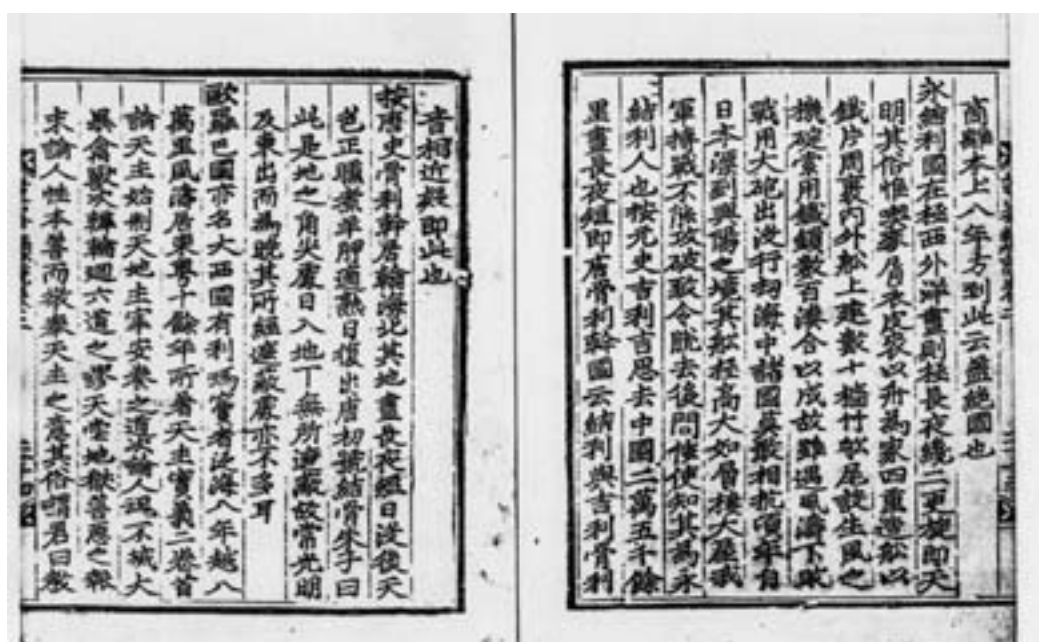 商離本土八年方到此云盖絶國也
永結利國在極西外洋晝則極長夜纔二更旋即天
明其俗惟喫麥屑衣皮裘以舟爲家四重造船以
鐵片周裹內外船上建數十檣竹船尾設生風之
機碇索用鐵鎖數百湊合以成故雖遇風濤不敗
戰用大砲出沒行刼海中諸國莫敢相抗頃年自
日本漂到興陽之境其船極高大如層樓大屋我
軍搏戰不能攻破致令脫去後問倭使知其爲永
結利人也按元史吉利吉思去中國二萬五千餘
里晝長夜短即唐骨利幹國云結利與吉利骨利
音相近疑即此也
按唐史骨利幹居翰海北其地晝長夜短日沒後天
色正曛煮羊胛適熟日復出唐初號結骨朱子曰
此是地之角尖處日入地下無所遮蔽故常光明
及東出而爲曉其所經遮蔽處亦不多耳
歐羅巴國亦名大西國有利瑪竇者泛海八年越八
萬里風濤居東粤十餘年所著天主實義二卷首
論天主始制天地主宰安養之道次論人魂不滅大
異禽獸次辯輪廻六道之謬天堂地獄善惡之報
末論人性本善而敬奉天主之意其俗謂君曰敎